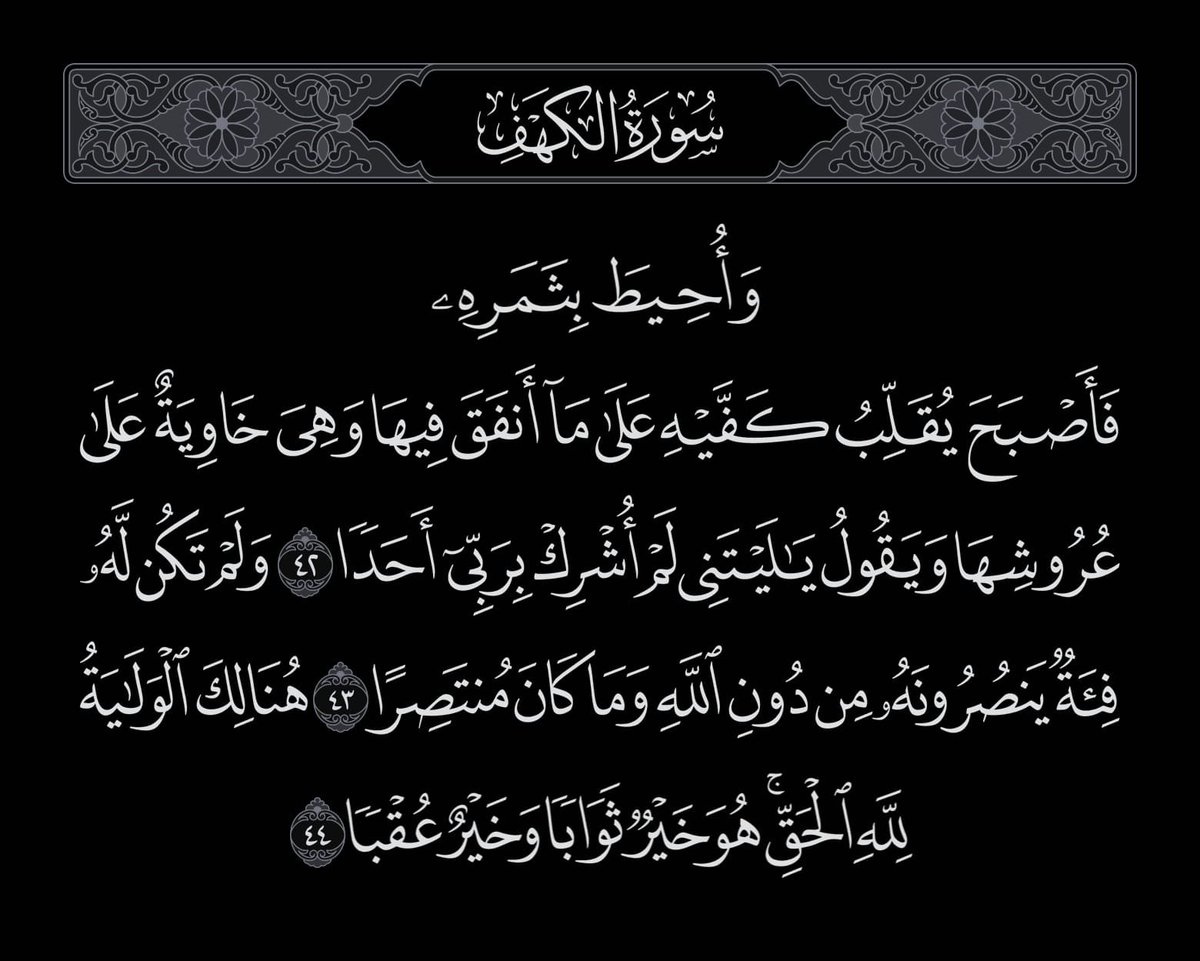 سُورَةُ الكَهْفِ
وَأُحِيطَ بِثَمَرِهِۦ
فَأَصْبَحَ يُقَلِّبُ كَفَّيْهِ عَلَىٰ مَآ أَنفَقَ فِيهَا وَهِىَ خَاوِيَةٌ عَلَىٰ
عُرُوشِهَا وَيَقُولُ يَـٰلَيْتَنِى لَمْ أُشْرِكْ بِرَبِّىٓ أَحَدًا ٤٢ وَلَمْ تَكُن لَّهُۥ
فِئَةٌ يَنصُرُونَهُۥ مِن دُونِ ٱللَّهِ وَمَا كَانَ مُنتَصِرًا ٤٣ هُنَالِكَ ٱلْوَلَـٰيَةُ
لِلَّهِ ٱلْحَقِّ ۚ هُوَ خَيْرٌ ثَوَابًا وَخَيْرٌ عُقْبًا ٤٤